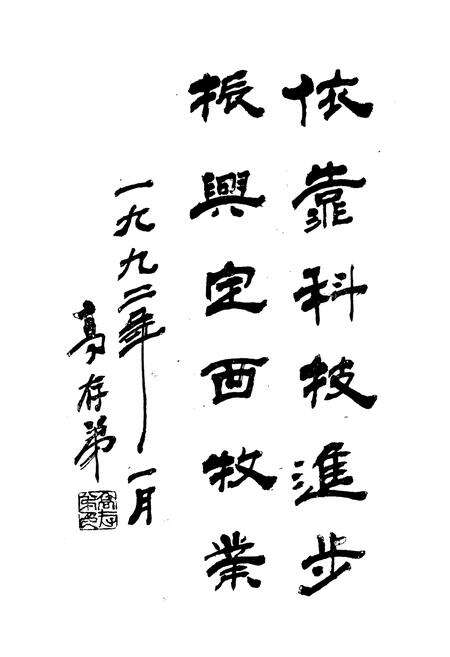 依靠科技進步
振興定西牧業
一九九二年一月
存第